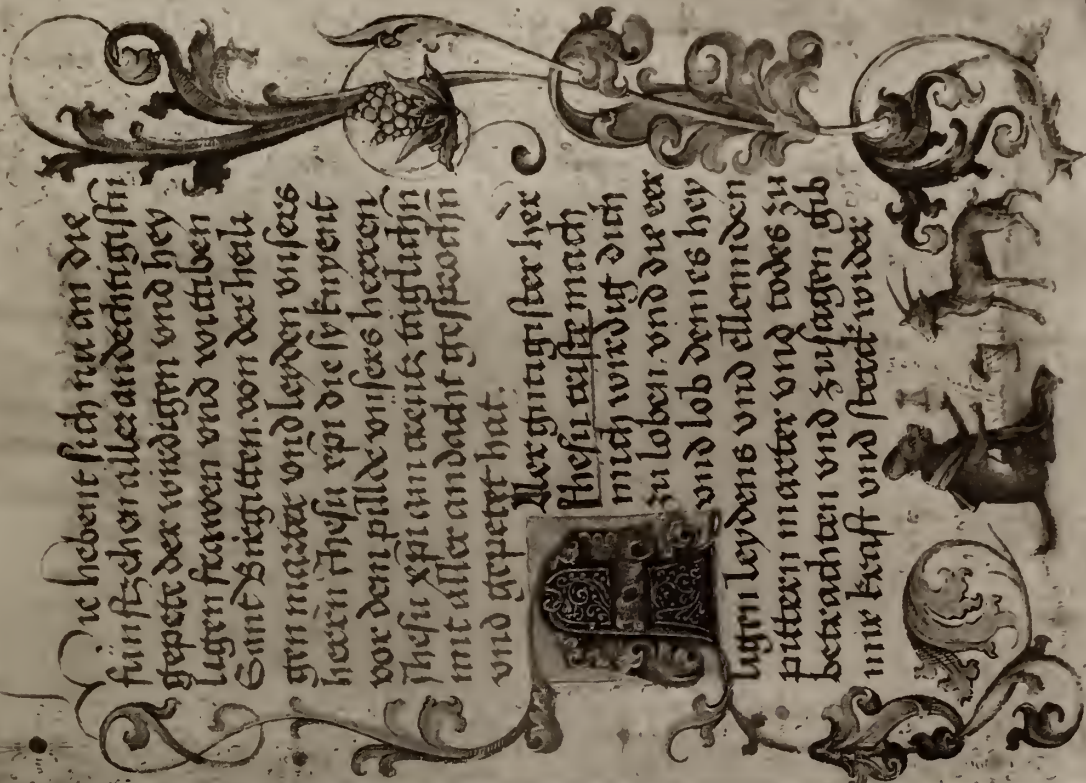 Hie hebent sich nu an die
fuinftzehen aller andechtigistn
gepete der wirdigen vnd hey
ligen frawen vnd wittiben
Sannt Birgitten von der heili
gen marter vnd leyden vnsers
herrn Jhesu xp̄i die sy knyent
vor dem pillde vnsers herren
Jhesu xp̄i im creutz täglichn̄
mit aller andacht gesprochn̄
vnd gepetet hat.
Allergütigister her
Jhesu criste mach
mich wirdig dich
zu loben vnd die eer
vnd lob deines hey
ligen leydens vnd ellennden
pittern marter vnd todes zu
betrachten vnd zusagen gib
mir krafft vnd sterck wider